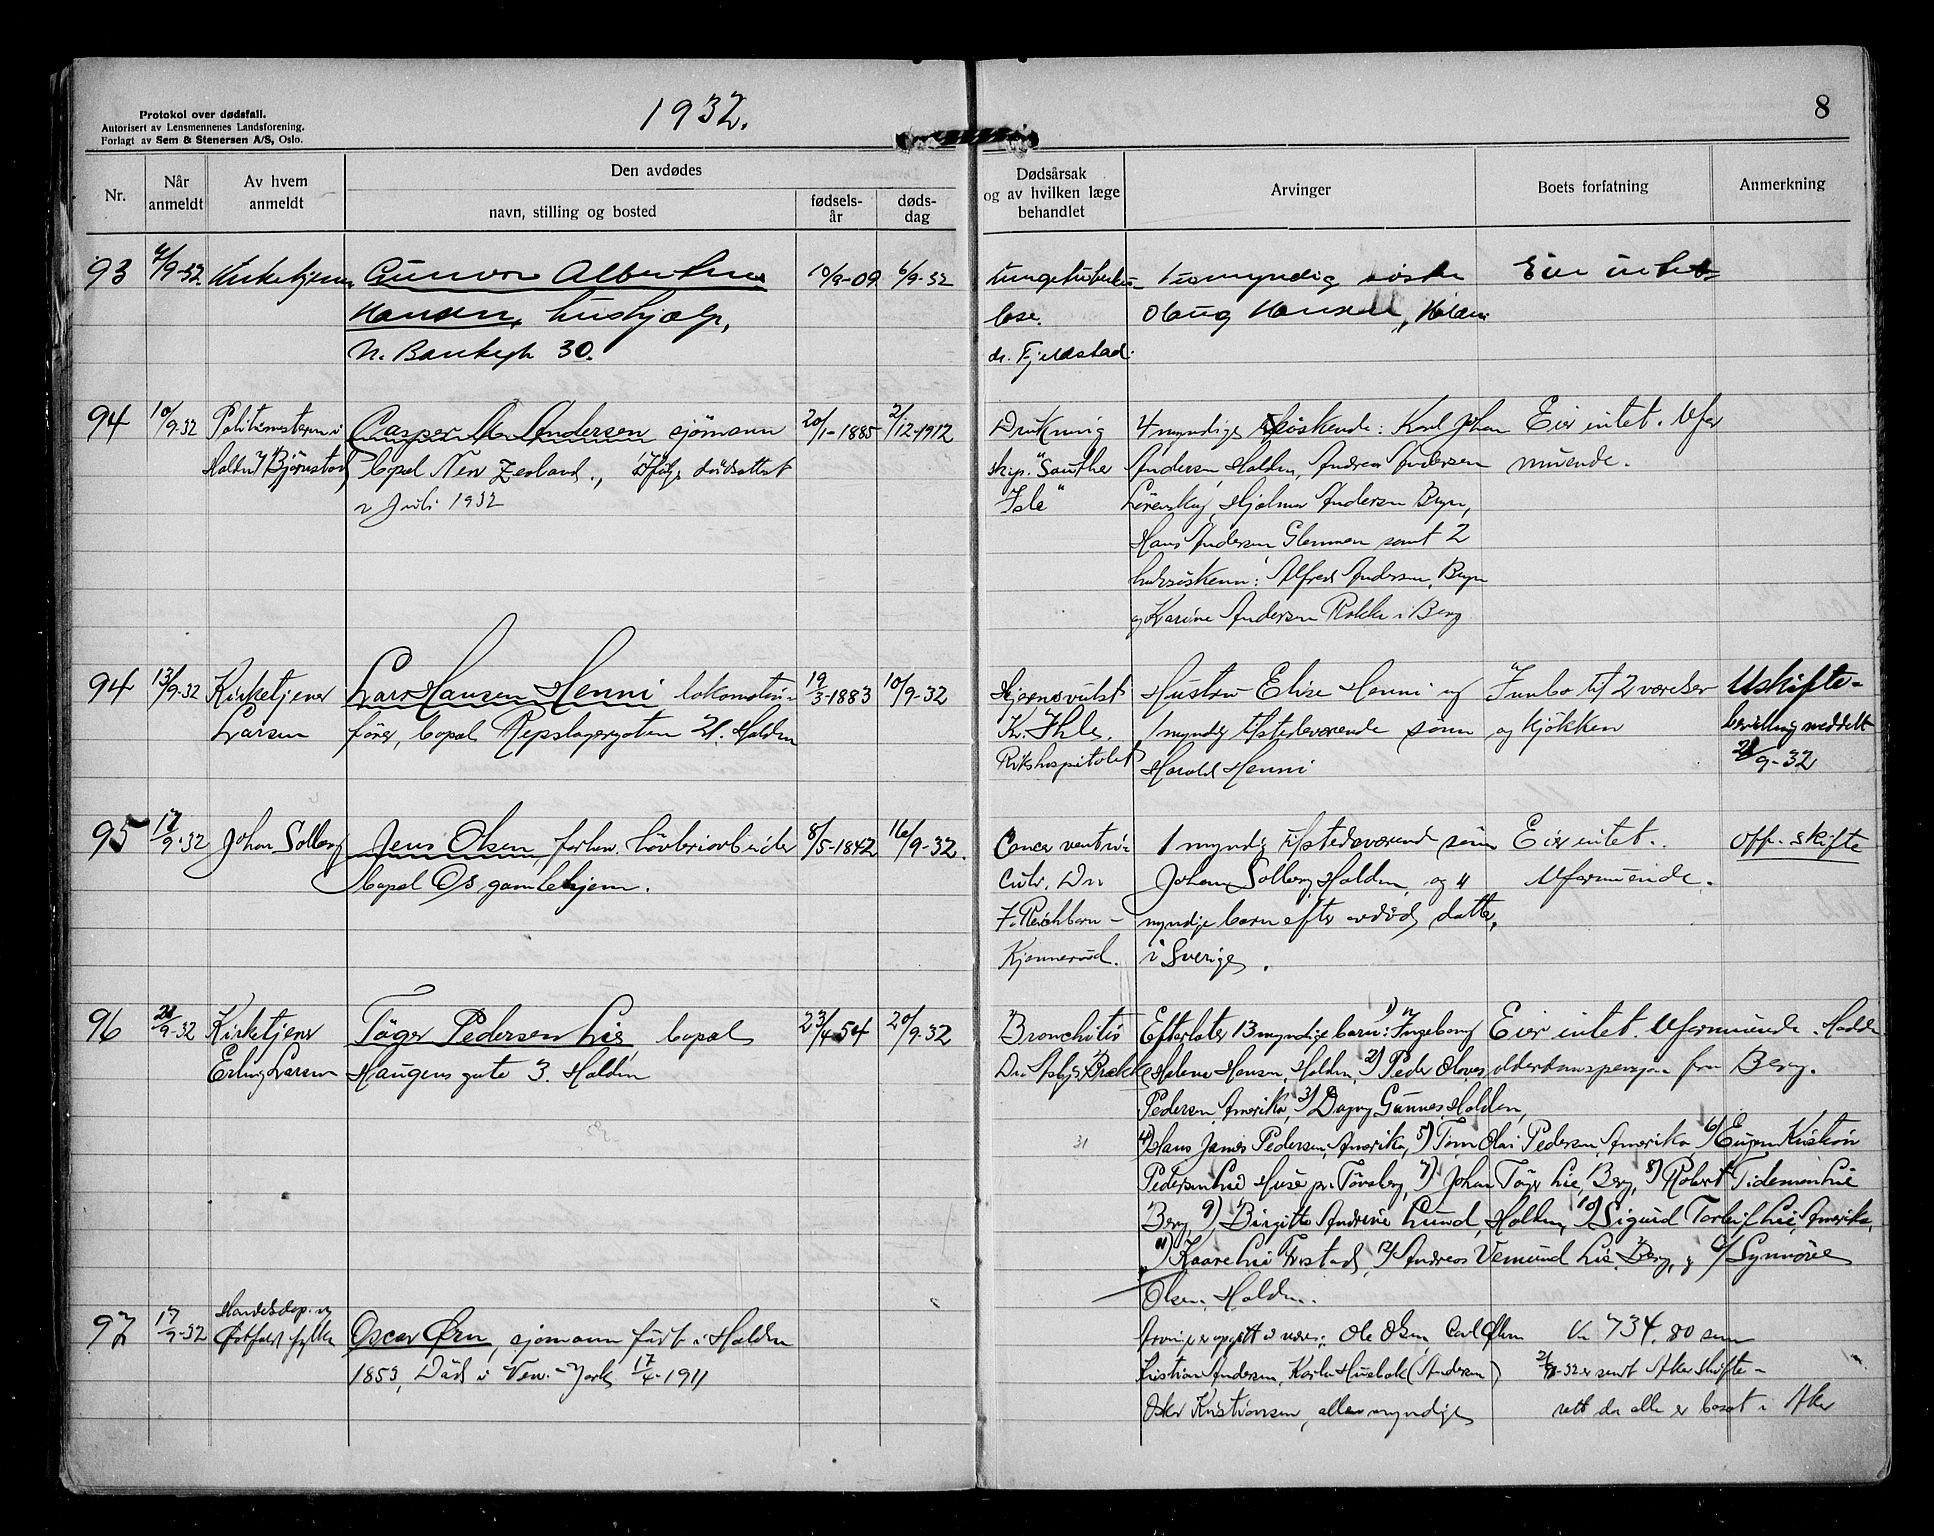 Protokol over dødsfall.
Autorisert av Lensmennenes Landsforening.
Forlagt av Sem & Stenersen A/S, Oslo.
1932.
8
Nr.
Når anmeldt
Av hvem anmeldt
Den avdødes
navn, stilling og bosted
fødsels-år
døds-dag
Dødsårsak og av hvilken læge behandlet
Arvinger
Boets forfatning
Anmerkning
93
7/9-32.
Hansen, hushjælp,
30.
10/9-09
6/9-32
dr. Fjeldstad.
1 umyndig
Olaug Hansen, Halden
Eier intet
94
10/9-32
Politimesteren i
Halden v/ Bjørnstad
Casper A Andersen sjömann
bopæl New Zealand., ifølge dødsattest
2 Juli 1932
20/1-1885
2/12-1912
Drukning
skip. "Souther
Isle"
4 myndige söskende: Karl Johan
Andersen Halden, Andrea Andersen
Lörenskog, Hjalmar Andersen Bryn,
Hans Andersen Glemmen samt 2
halvsösken: Alfred Andersen, Bryn
og Karine Andersen Rokke i Berg
Eier intet. Ufor
muende.
94
13/9-32
Kirketjener
Larsen
Lars Hansen Henni lokomotiv-
förer, bopæl Repslagergaten 21. Halden
19/3-1883
10/9-32
Hjernesvulst
Kr. Ihle.
Rikshospitalet
Hustru Elise Henni og
1 myndig tilstedeværende sönn
Harald Henni
Innbo til 2 værelser
og kjökken
Uskifte-
bevilling meddelt
21/9-32
95
17/9-32
Johan Solberg
Jens Olsen, forhenv. hövleriarbeider
bopæl Os gamlehjem.
8/5-1842
16/9-32.
Cancer ventri-
culi. Dr
Kjennerud.
1 myndig tilstedeværende sönn
Johan Solberg, Halden, og 4
myndige barn efter avdöd datter,
i Sverige.
Eier intet..
Uformuende.
Off. skifte
96
21/9-32
Kirketjener
Erling Larsen
Töger Pedersen Lie bopæl
Haugens gate 3. Halden
23/4-54
20/9-32
Bronchitis
Dr. Asbj. Brække
31
Efterlater 13 myndige barn: 1) Ingeborg
Helene Hansen, Halden, 2) Peder Olaves
Pedersen, Amerika, 3) Dagny Gunnes, Halden,
4) Hans James Pedersen, Amerika, 5) Tom Olai Pedersen, Amerika 6) Eugen Kristian
Pedersen Lie Husö pr. Tönsberg, 7) Johan Töger Lie, Berg, 8) Robert Tidemann Lie
Berg 9) Birgitte Andrine Lund, Halden, 10) Sigurd Torleif Lie, Amerika,
11) Kaare Lie Ørstad, 12) Andreas Vemund Lie, Berg, og Synnöve
Olsen, Halden.
Eier intet. Uformuende. Hadde
alderdomspensjon fra Berg.
97
17/9-32
Handelsdep. og
Østfold fylke
Oscar Ørn, sjömann född i Halden
1853, Död i New-York 17/4-1911
Arvinger opgitt å være: Ole Olsen, Carl Olsen
Kristian Andersen, Karla Husbak (Andersen)
Oskar Kristiansen, alle myndige
Kr 734.80 som
21/9-32 er sendt Aker skifte-
rett da alle er bosat i Aker